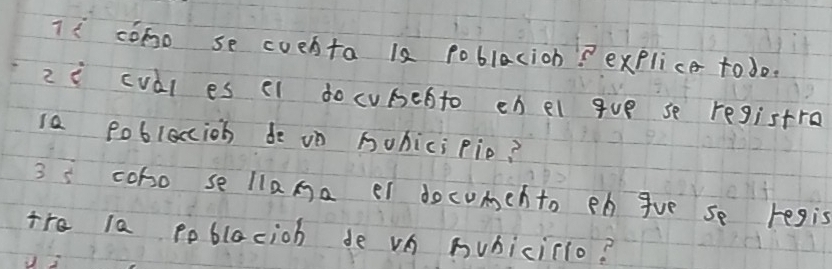 1¿ cómo se cuenta la poblacion? explica todo.
2¿ cuál es el documento en el que se registra
la poblacion de un municipio?
3¿ como se llama el documento en que se regis
tra la poblacion de un municipio?